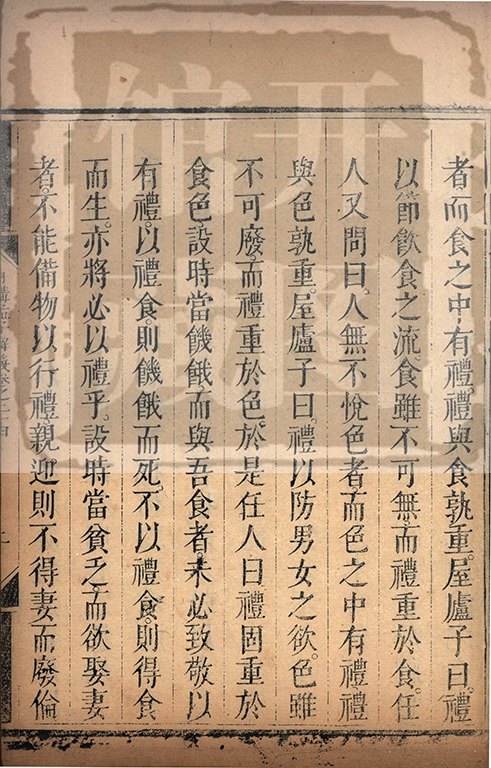 者而食之中有禮禮與食孰重。屋廬子曰。禮
以節飲食之流。食雖不可無。而禮重於食。任
人又問曰。人無不悅色者。而色之中有禮。禮
與色孰重。屋廬子曰。禮以防男女之欲。色雖
不可廢。而禮重於色。於是任人曰。禮固重於
食色。設時當饑餓而與吾食者。未必致敬以
有禮。以禮食。則饑餓而死。不以禮食。則得食
而生。亦將必以禮乎。設時當貧乏。而欲娶妻
者。不能備物以行禮。親迎則不得妻而廢倫